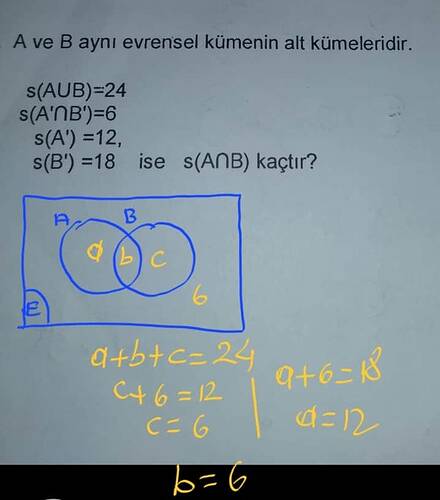 A ve B aynı evrensel kümenin alt kümeleridir.
s(AUB)=24
s(A'∩B')=6
s(A') =12,
s(B') =18 ise s(A∩B) kaçtır?
A B
a b c
6
E
a+b+c=24
c+6=12
c=6
a+6=18
a=12
b=6